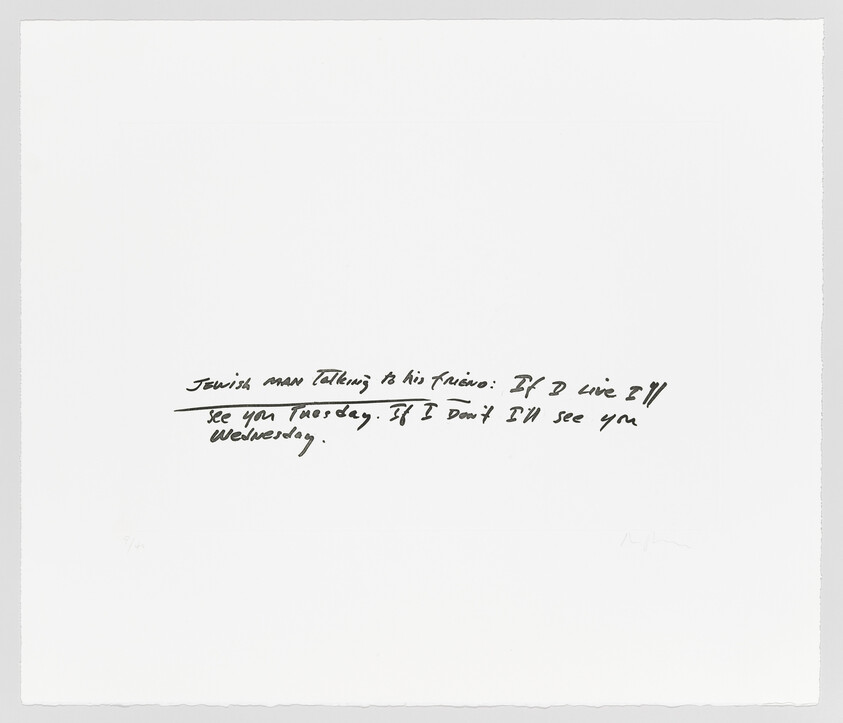 Jewish man Talking to his friend: If I Live I'll
see you Tuesday. If I Don't I'll see you
Wednesday.